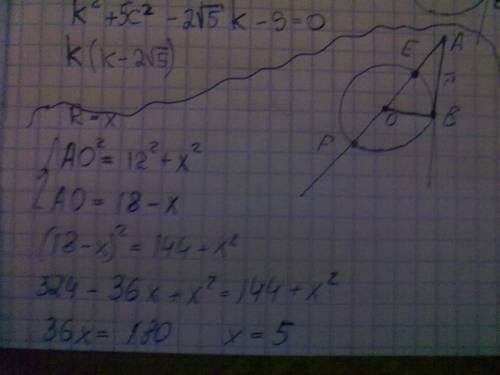 k² + 5x² - 2√5 k - 9 = 0
k(k - 2√5)
R = x
AO² = 12² + x²
AO = 18 - x
(18 - x)² = 144 + x²
324 - 36x + x² = 144 + x²
36x = 180 x = 5
E A
O B
P